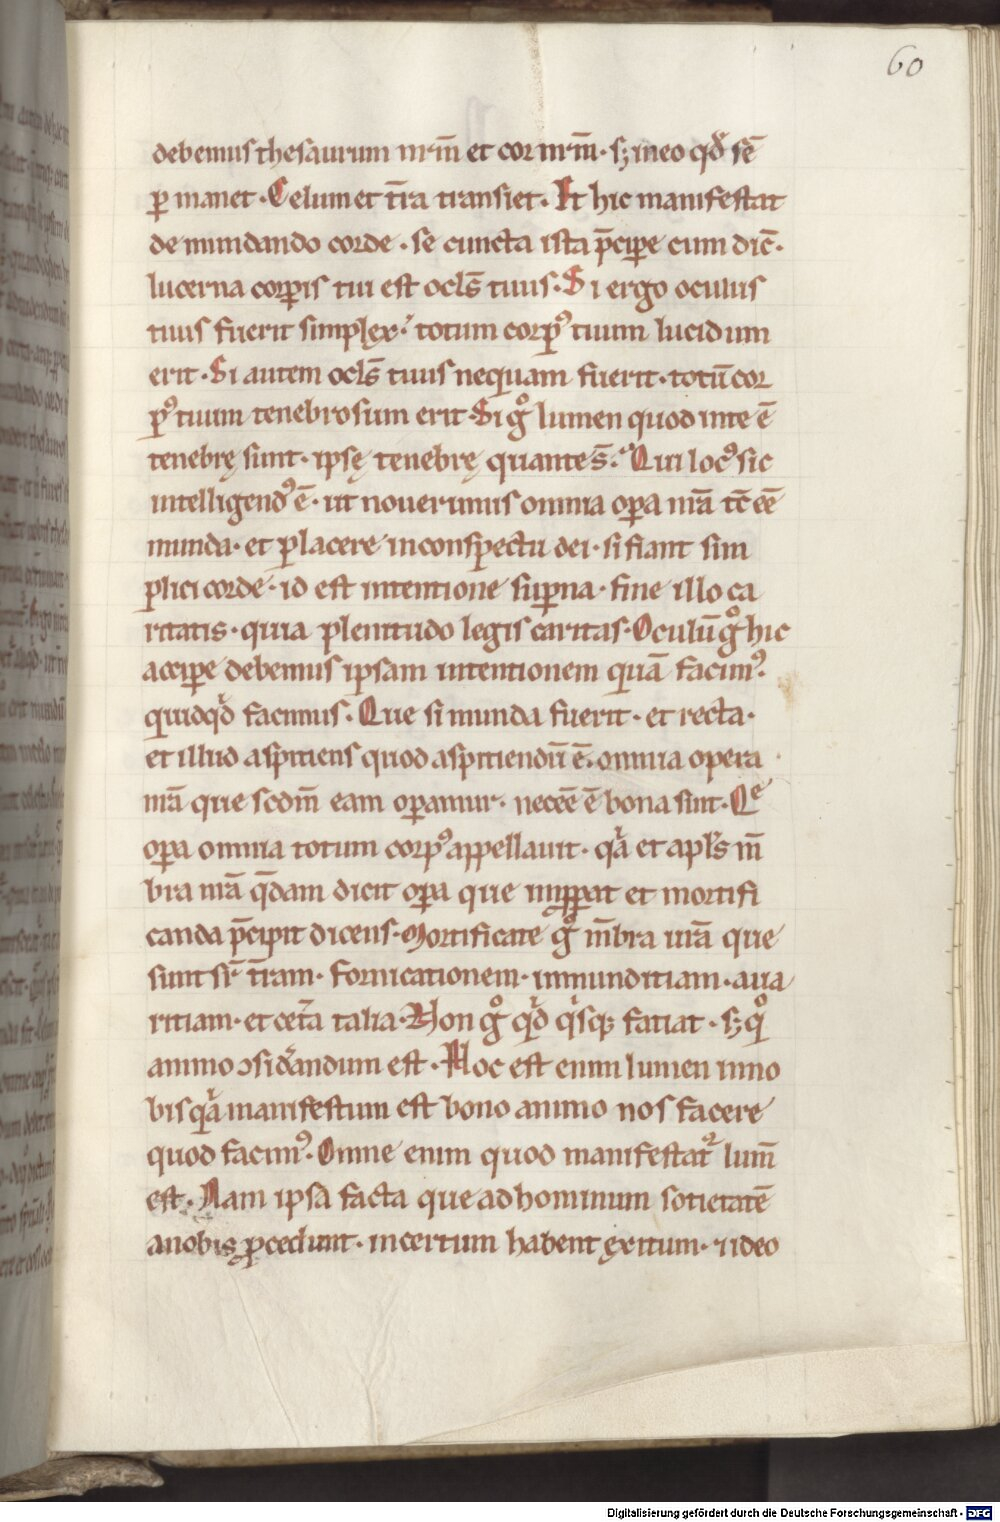 60
debemus thesaurum nr̄m et cor nr̄m · sꝫ in eo qd̓ sēꝑ
ꝑ manet · Celum et t̄ra transiet · Et hic manifestat
de mundando corde · se cuncta ista p̄cipe cum dic̄ ·
lucerna corꝑis tui est ocl̄s tuus · Si ergo oculus
tuus fuerit simplex · totum corpꝰ tuum lucidum
erit · Si autem ocl̄s tuus nequam fuerit · totū cor
pꝰ tuum tenebrosum erit · Si gͦ lumen quod in te ē
tenebrę sunt · ipsę tenebrę quante s̄ · Qui locꝰ sic
intelligendꝰ ē · ut nouerimus omnia oꝑa nr̄a tc̄ eē
munda · et placere in conspectu dei · si fiant sim
plici corde · id est intentione suꝑna · fine illo ca
ritatis · quia plenitudo legis caritas · Oculū gͦ hic
acciꝑe debemus ipsam intentionem quā facimꝰ ·
quidqd̓ facimus · Que si munda fuerit · et recta ·
et illud aspitiens quod aspitiendū ē · omnia opera
nr̄a que scdm̄ eam oꝑamur · necēē ē bona sint · Qͤ
oꝑa omnia totum corpꝰ appellauit · qͣ et apl̄s m̄
bra nr̄a q̄dam dicit oꝑa que imꝓbat et mortifi
canda p̄cipit dicens · Mortificate gͦ m̄bra ur̄a que
sunt sr̄ t̄ram · fornicationem · inmunditiam · aua
ritiam · et cet̄a talia · Non gͦ qd̓ qͥsqꝫ fatiat · sꝫ qͦ
animo ↄsid̓andum est · Hoc est enim lumen in no
bis qͣ manifestum est bono animo nos facere
quod facimꝰ · Omne enim quod manifestat᷑ lum̄
est · Nam ipsa facta que ad hominum sotietatē
a nobis ꝓcedunt · incertum habent exitum · ⁊ ideo
Digitalisierung gefördert durch die Deutsche Forschungsgemeinschaft - DFG